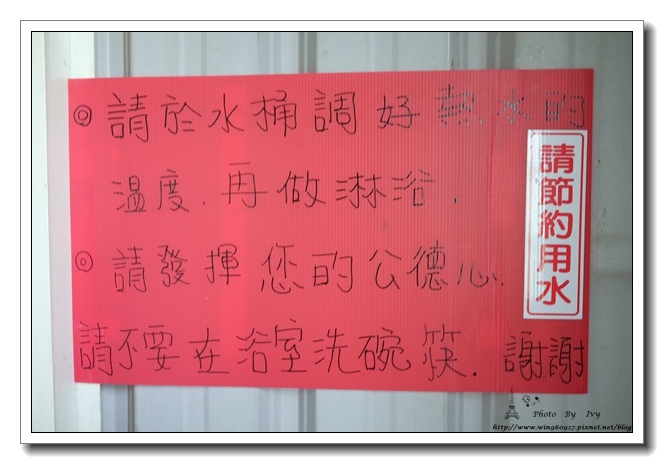 ◎請於水桶調好熱水的
溫度.再做淋浴.
◎請發揮您的公德心.
請不要在浴室洗碗筷.謝謝
請節約用水
Photo By Ivy
http://www.wing60927.pixnet.net/blog